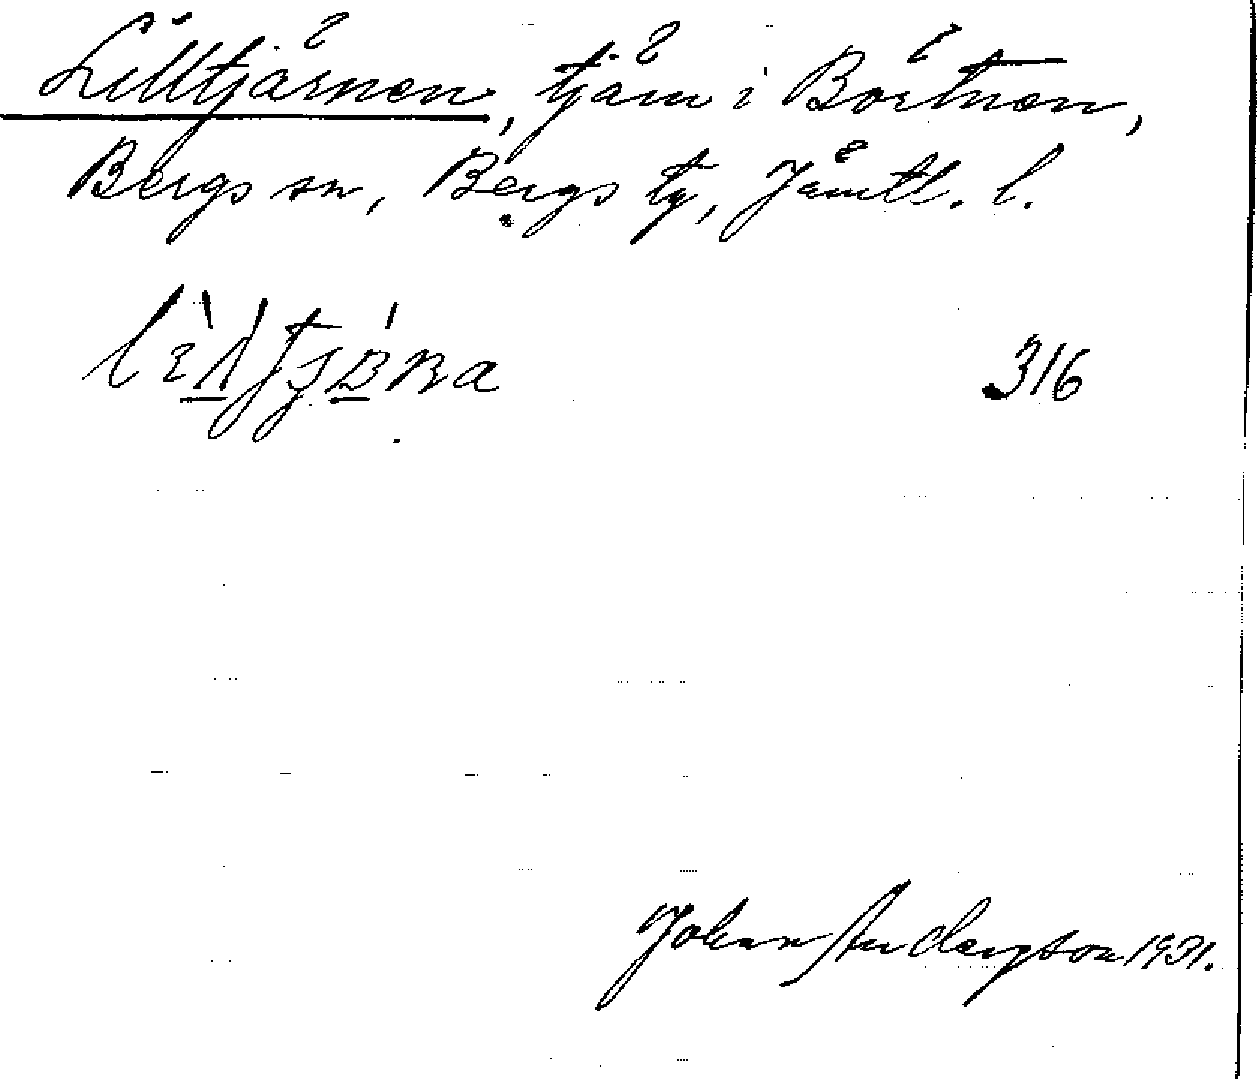 Lilltjärnen, tjärn i Börtnen,
Bergs sn, Bergs tg, Jämtl. l.
316
Johan Andersson 1931.